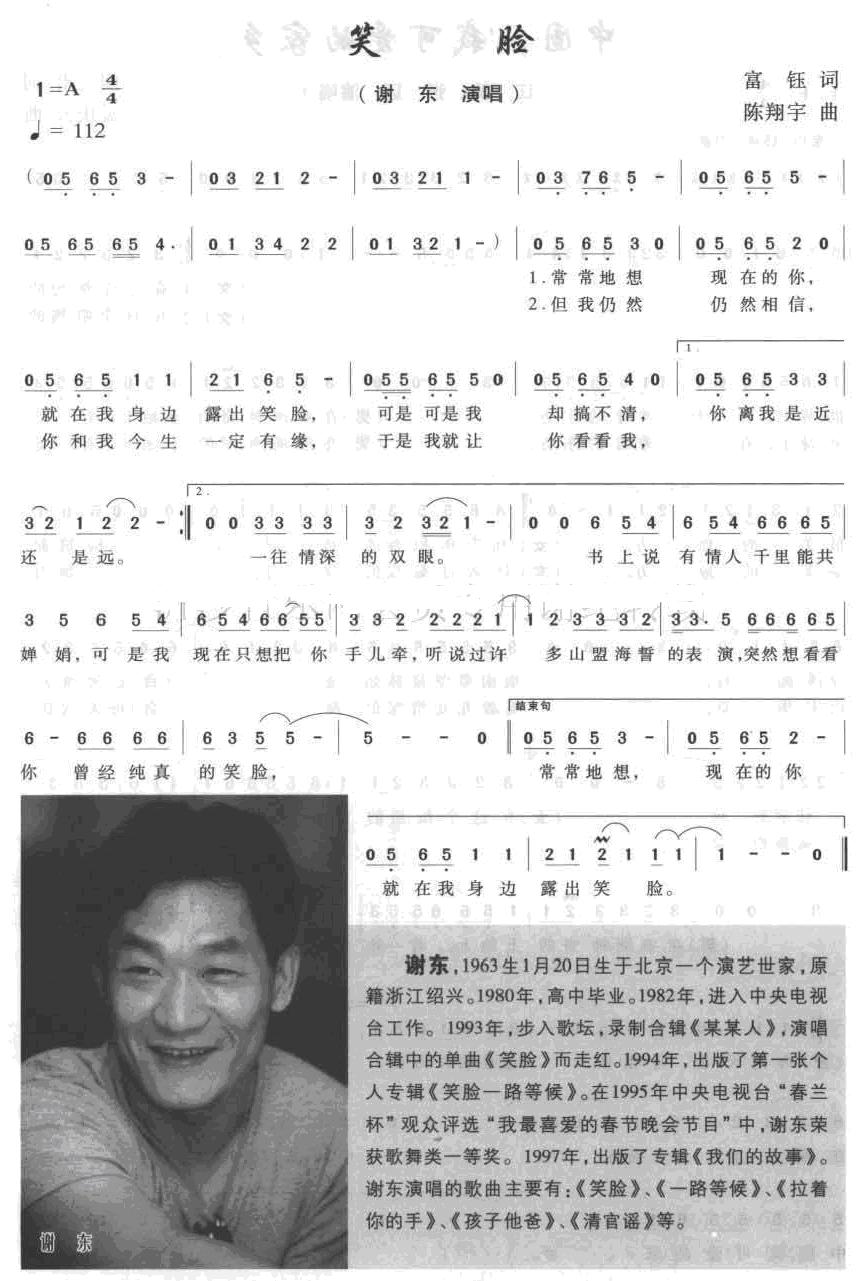 笑 脸
1=A 4/4
（谢 东 演唱）
富 钰 词
陈翔宇 曲
♩= 112
(0 5 6 5 3 - | 0 3 2 1 2 - | 0 3 2 1 1 - | 0 3 7 6 5 - | 0 5 6 5 5 - |
0 5 6 5 6 5 4 · | 0 1 3 4 2 2 | 0 1 3 2 1 - ) | 0 5 6 5 3 0 | 0 5 6 5 2 0 |
1.常 常地 想 现 在的 你，
2.但 我仍 然 仍 然相 信，
1.
0 5 6 5 1 1 | 2 1 6 5 - | 0 5 5 6 5 5 0 | 0 5 6 5 4 0 | 0 5 6 5 3 3 |
就 在我 身 边 露出 笑 脸， 可是 可是 我 却 搞不 清， 你 离我 是 近
你 和我 今 生 一定 有 缘， 于是 我就 让 你 看看 我，
2.
3 2 1 2 2 - :| 0 0 3 3 3 3 | 3 2 3 2 1 1 - | 0 0 6 5 4 | 6 5 4 6 6 6 5 |
还 是 远。 一往 情深 的 双 眼。 书 上说 有 情人 千里 能共
3 5 6 5 4 || 6 5 4 6 6 5 5 | 3 3 2 2 2 2 1 | 1 2 3 3 3 2 | 3 3 · 5 6 6 6 6 5 |
婵 娟，可 是我 现在只想把 你 手儿 牵，听说过许 多山盟海誓 的表 演，突然想看看
结束句
6 - 6 6 6 6 | 6 3 5 5 - | 5 - - 0 || 0 5 6 5 3 - | 0 5 6 5 2 - |
你 曾经 纯真 的 笑 脸， 常 常地 想， 现 在的 你
0 5 6 5 1 1 | 2 1 2 1 1 1 | 1 - - 0 ||
就 在我 身 边 露 出 笑 脸。
谢东，1963年1月20日生于北京一个演艺世家，原
籍浙江绍兴。1980年，高中毕业。1982年，进入中央电视
台工作。1993年，步入歌坛，录制合辑《某某人》，演唱
合辑中的单曲《笑脸》而走红。1994年，出版了第一张个
人专辑《笑脸一路等候》。在1995年中央电视台“春兰
杯”观众评选“我最喜爱的春节晚会节目”中，谢东荣
获歌舞类一等奖。1997年，出版了专辑《我们的故事》。
谢东演唱的歌曲主要有：《笑脸》、《一路等候》、《拉着
你的手》、《孩子他爸》、《清官谣》等。
谢 东